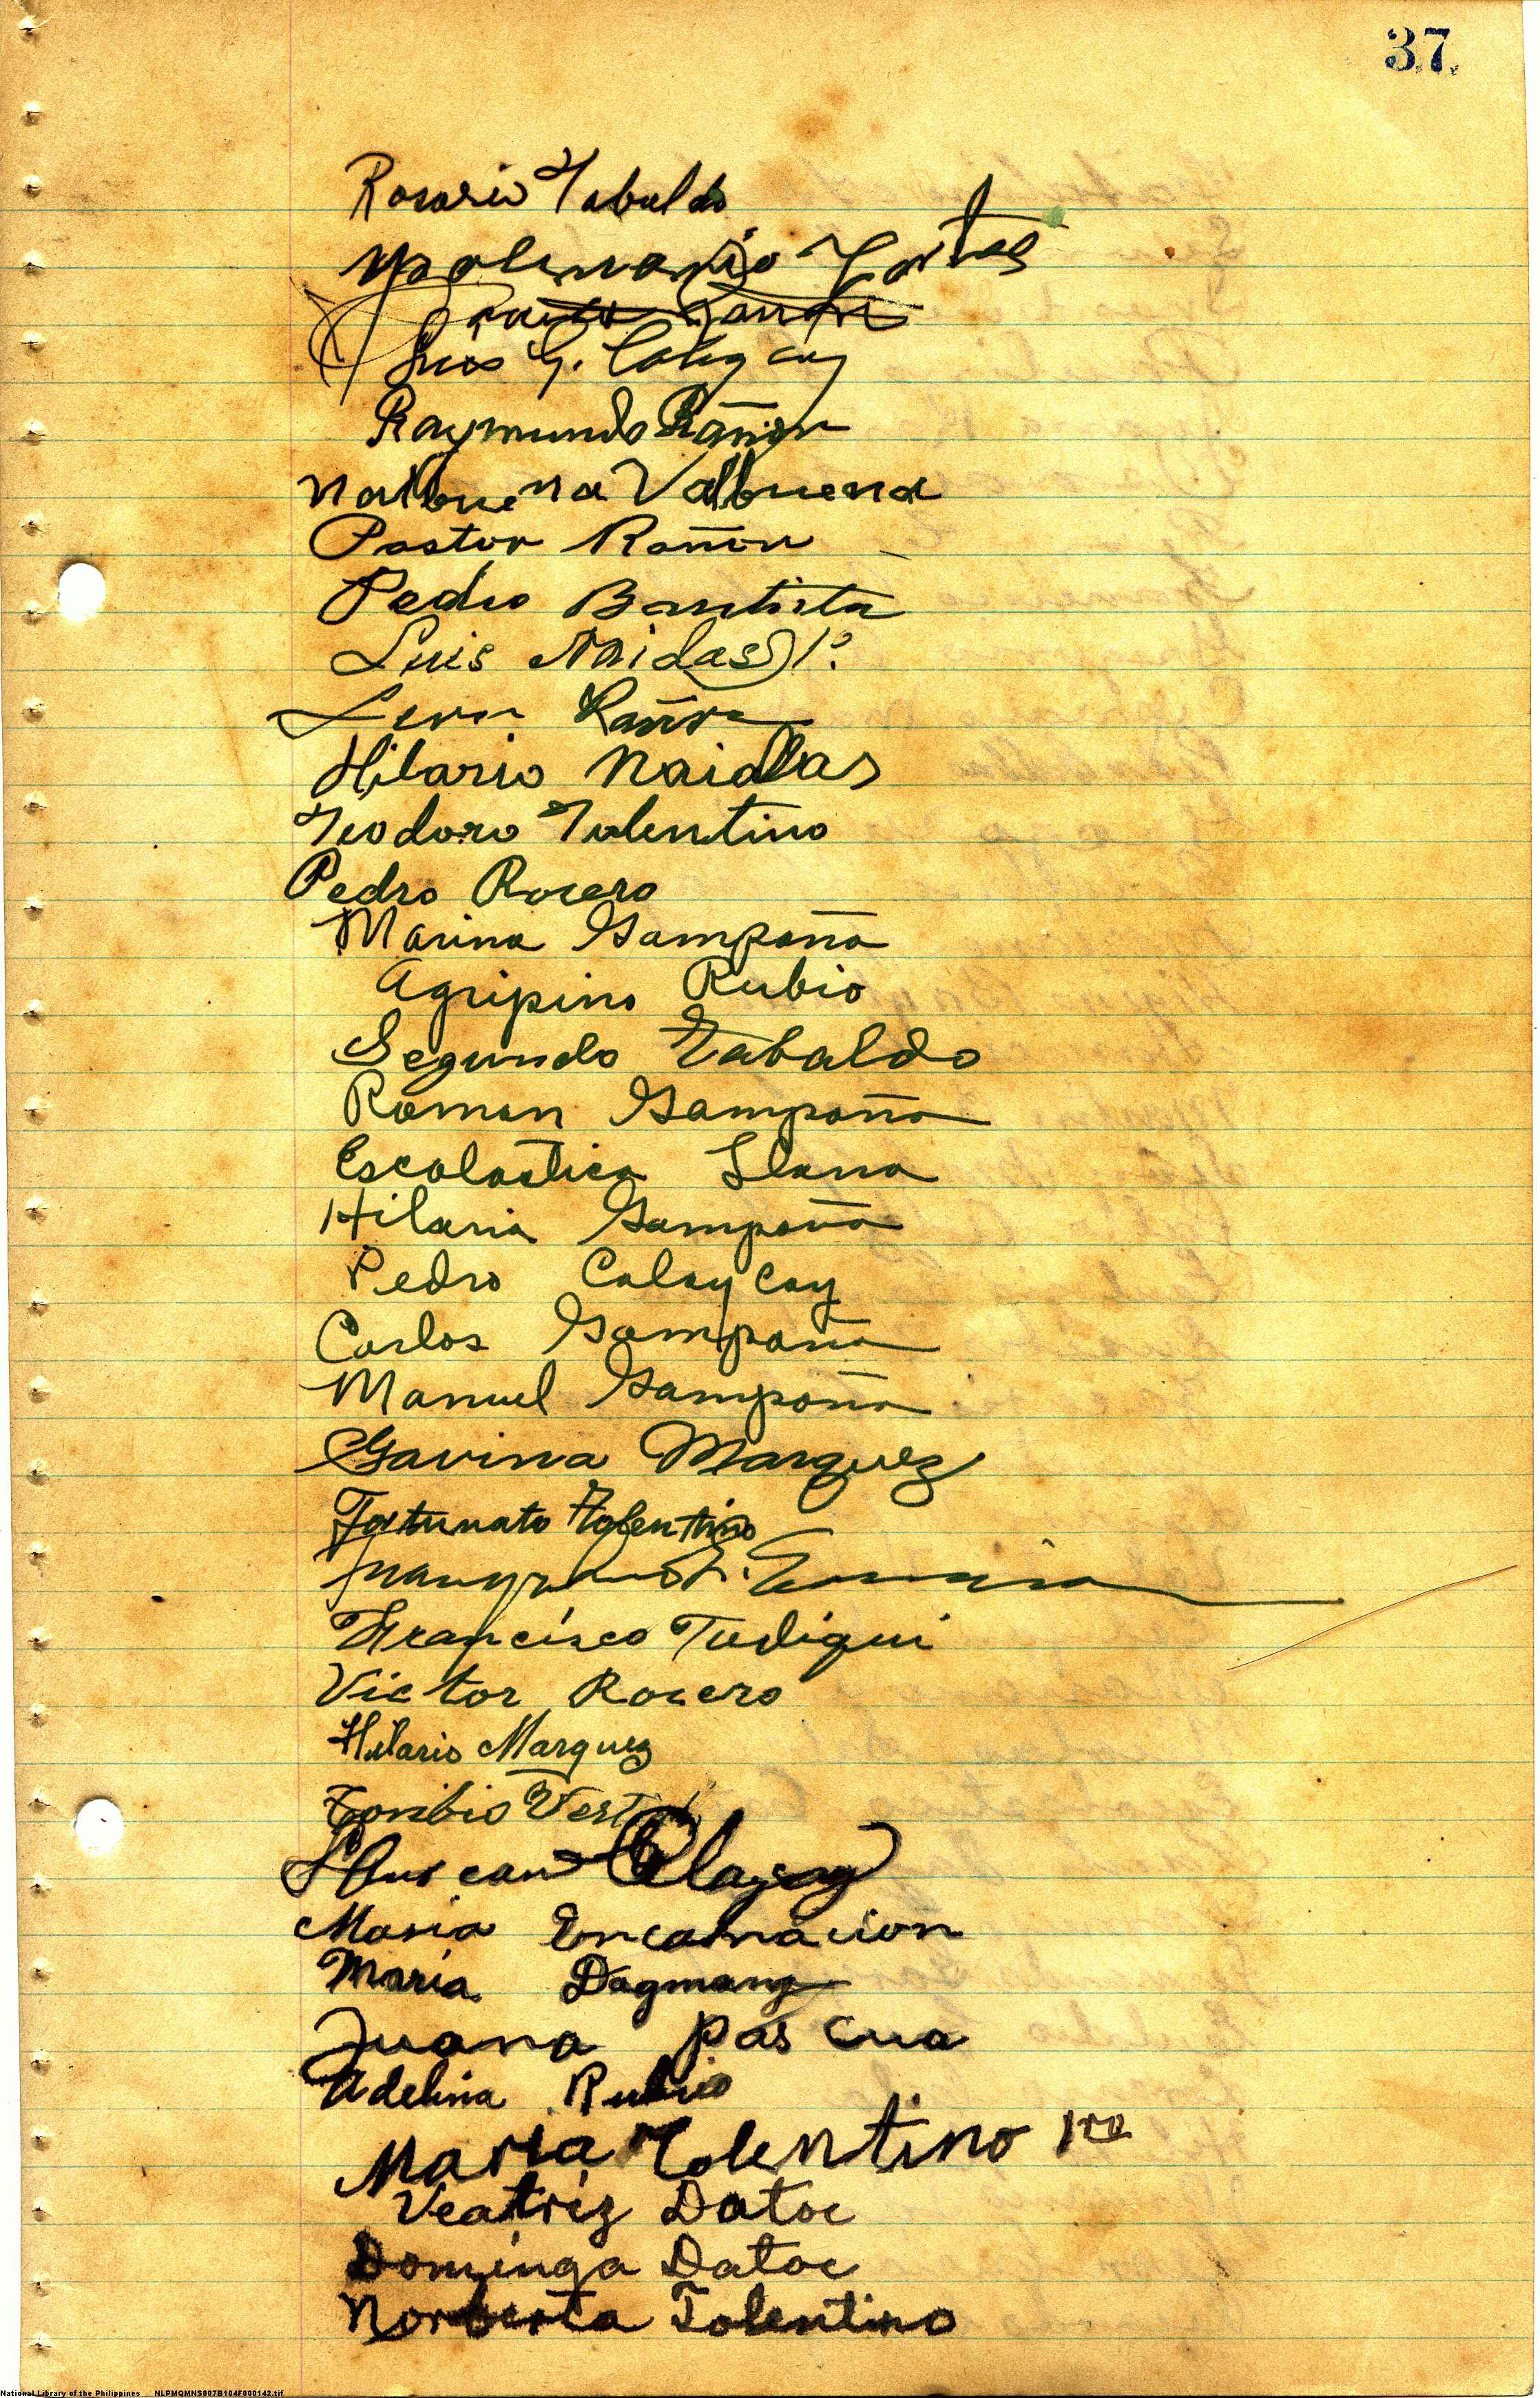 37
Rosario Tabaldo
Apolinario
Luis G. Calaycay
Raymundo Rañon
Valbuena
Pastor Rañon
Pedro Bautista
Luis Naidas 1º.
Leon Rañon
Hilario Naidas
Teodoro Tolentino
Pedro Rocero
Marina Gampoña
Agripino Rubio
Segundo Tabaldo
Roman Gampoña
Escolastica Llana
Hilaria Gampoña
Pedro Calaycay
Carlos Gampoña
Manuel Gampoña
Gavina Marquez
Fortunato Tolentino
Francisco Tudiqui
Victor Rocero
Hilario Marquez
Toribio
Maria Encarnacion
Maria Dagmang
Juana Pascua
Adelina Rubio
Maria Tolentino 1ra
Veatriz Datoc
Dominga Datoc
Norberta Tolentino
National Library of the Philippines NLPMQMNS007B104F000142.tif